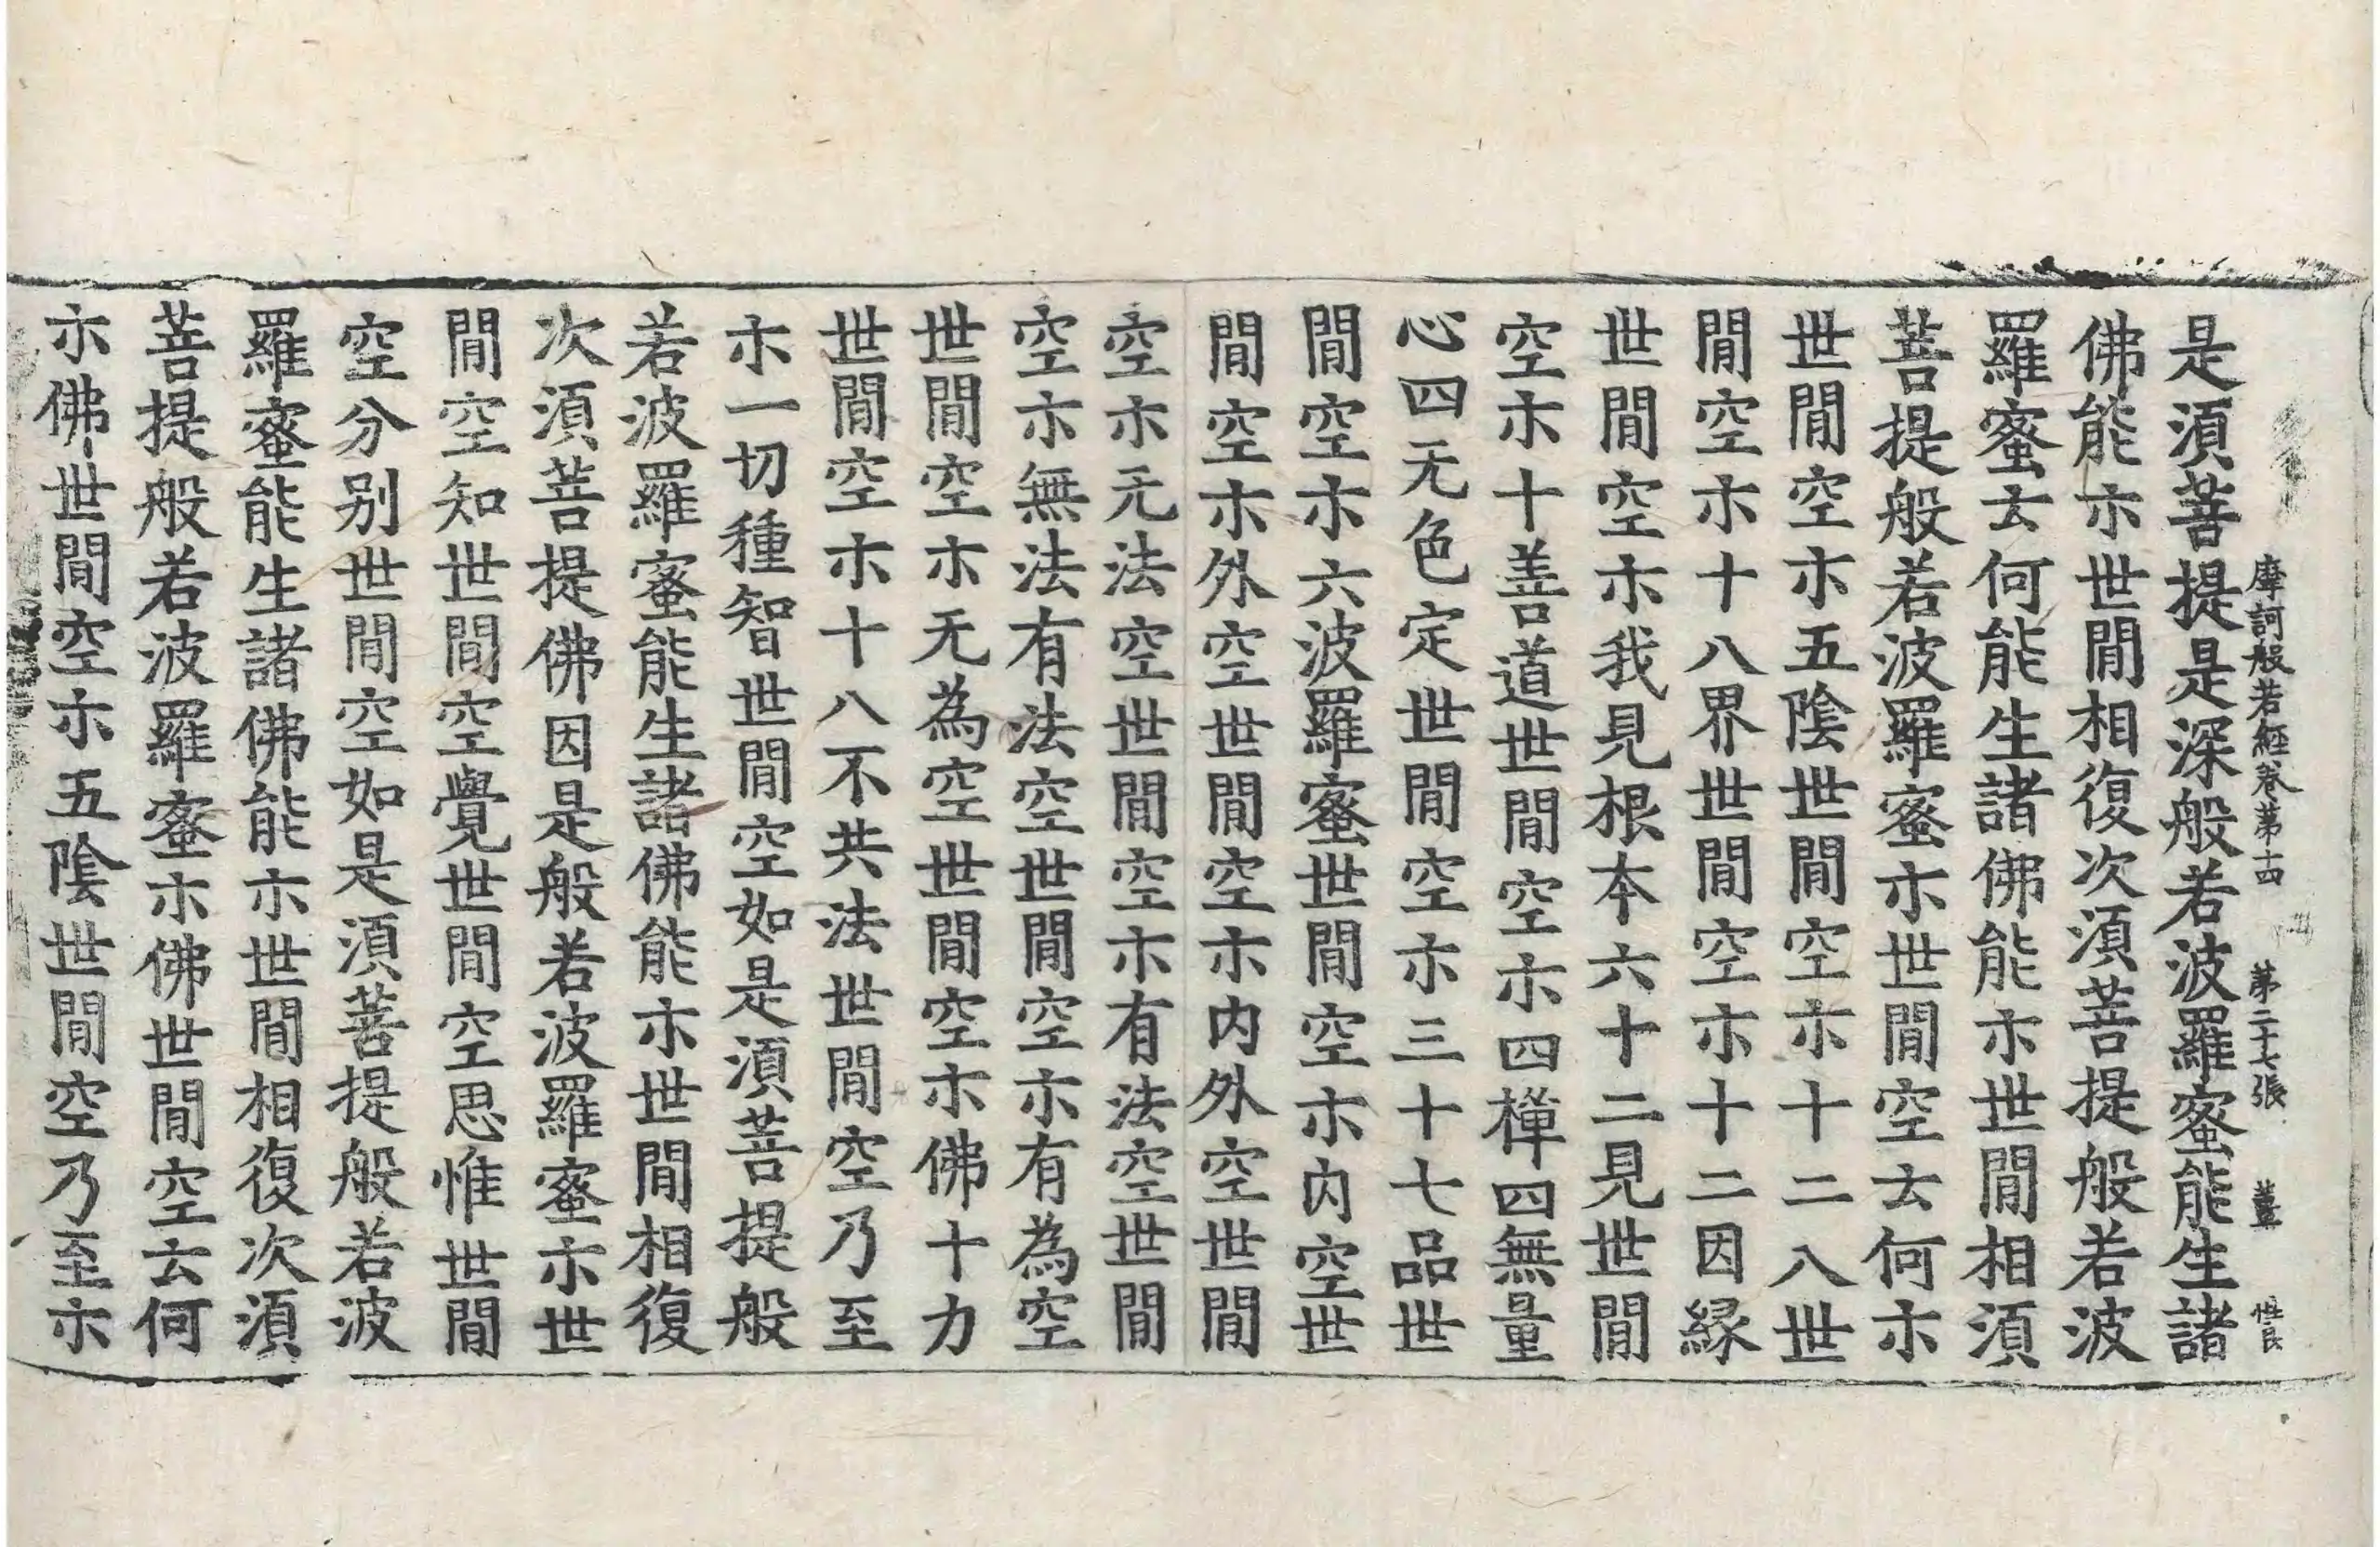 摩訶般若經卷第十四　第二十七張　薑　惟良
是湏菩提是深般若波羅蜜能生諸
佛能示世間相復次湏菩提般若波
羅蜜云何能生諸佛能示世間相湏
菩提般若波羅蜜示世間空云何示
世間空示五陰世間空示十二入世
間空示十八界世間空示十二因縁
世間空示我見根本六十二見世間
空示十善道世間空示四禪四無量
心四无色定世間空示三十七品世
間空示六波羅蜜世間空示内空世
間空示外空世間空示内外空世間
空示无法空世間空示有法空世間
空示無法有法空世間空示有為空
世間空示无為空世間空示佛十力
世間空示十八不共法世間空乃至
示一切種智世間空如是湏菩提般
若波羅蜜能生諸佛能示世間相復
次湏菩提佛因是般若波羅蜜示世
間空知世間空覺世間空思惟世間
空分别世間空如是湏菩提般若波
羅蜜能生諸佛能示世間相復次湏
菩提般若波羅蜜示佛世間空云何
示佛世間空示五陰世間空乃至示